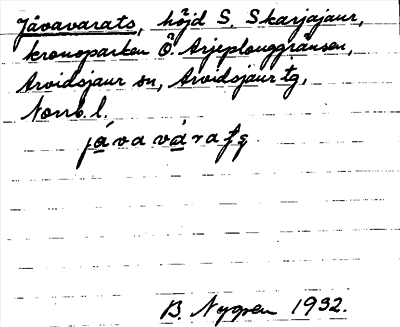 Jåvavarats, höjd S. Skarjajaur,
kronoparken Ö. Arjeplouggränsen,
Arvidsjaur sn, Arvidsjaur tg,
Norrb. l.
B. Nygren 1932.